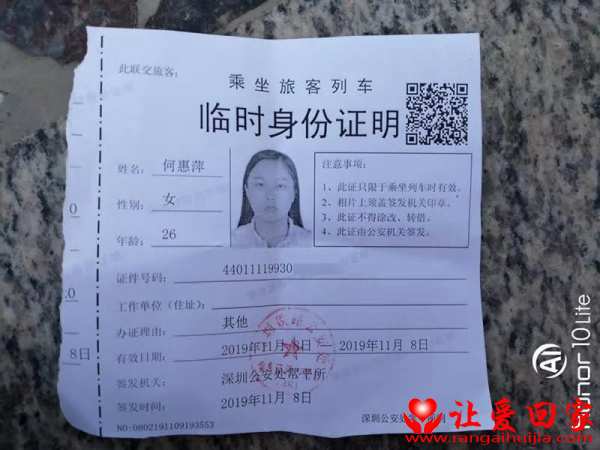 此联交旅客:
乘坐旅客列车
临时身份证明
姓名: 何惠萍
性别: 女
年龄: 26
注意事项:
1、此证只限于乘坐列车时有效。
2、相片上须盖签发机关印章。
3、此证不得涂改、转借。
4、此证由公安机关签发。
证件号码: 44011119930
工作单位(住址):
办证理由: 其他
有效日期: 2019年11月 8日 2019年11月 8日
签发机关: 深圳公安处常平所
签发时间: 2019年11月 8日
NO:0802191109193553
深圳公安处
0
8日
AI
honor 10 Lite
让爱回家
www.rangaihuijia.com